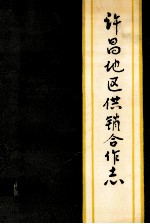 许昌地区供销合作志